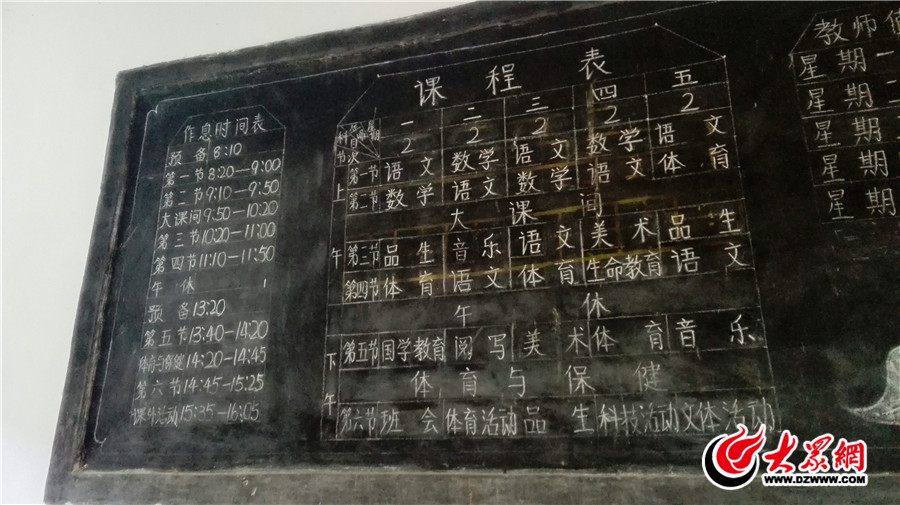 作息时间表
预 备 8:10
第一节 8:20—9:00
第二节 9:10—9:50
大课间 9:50—10:20
第三节 10:20—11:00
第四节 11:10—11:50
午 休
预 备 13:20
第五节 13:40—14:20
体育与保健 14:20—14:45
第六节 14:45—15:25
课外活动 15:35—16:05
课 程 表
一 二 三 四 五
2 2 2 2 2
节 次 科 目 星 期
上 第一节 语文 数学 语文 数学 语文
第二节 数学 语文 数学 语文 体育
大 课 间
午 第三节 品生 音乐 语文 美术 品生
第四节 体育 语文 体育 生命教育 语文
午 休
下 第五节 国学教育 阅写 美术 体育 音乐
体 育 与 保 健
午 第六节 班会 体育活动 品生 科技活动 文体活动
教师
星期一
星期二
星期
星期
星期
大众網
WWW.DZWWW.COM